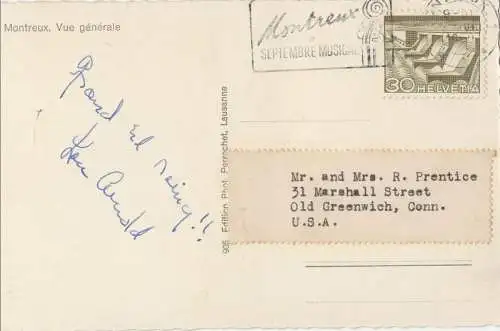 Montreux. Vue générale
Montreux
SEPTEMBRE MUSICAL
30 HELVETIA
Grand
905 Edition Phot. Perrochet, Lausanne
Mr. and Mrs. R. Prentice
31 Marshall Street
Old Greenwich, Conn.
U.S.A.